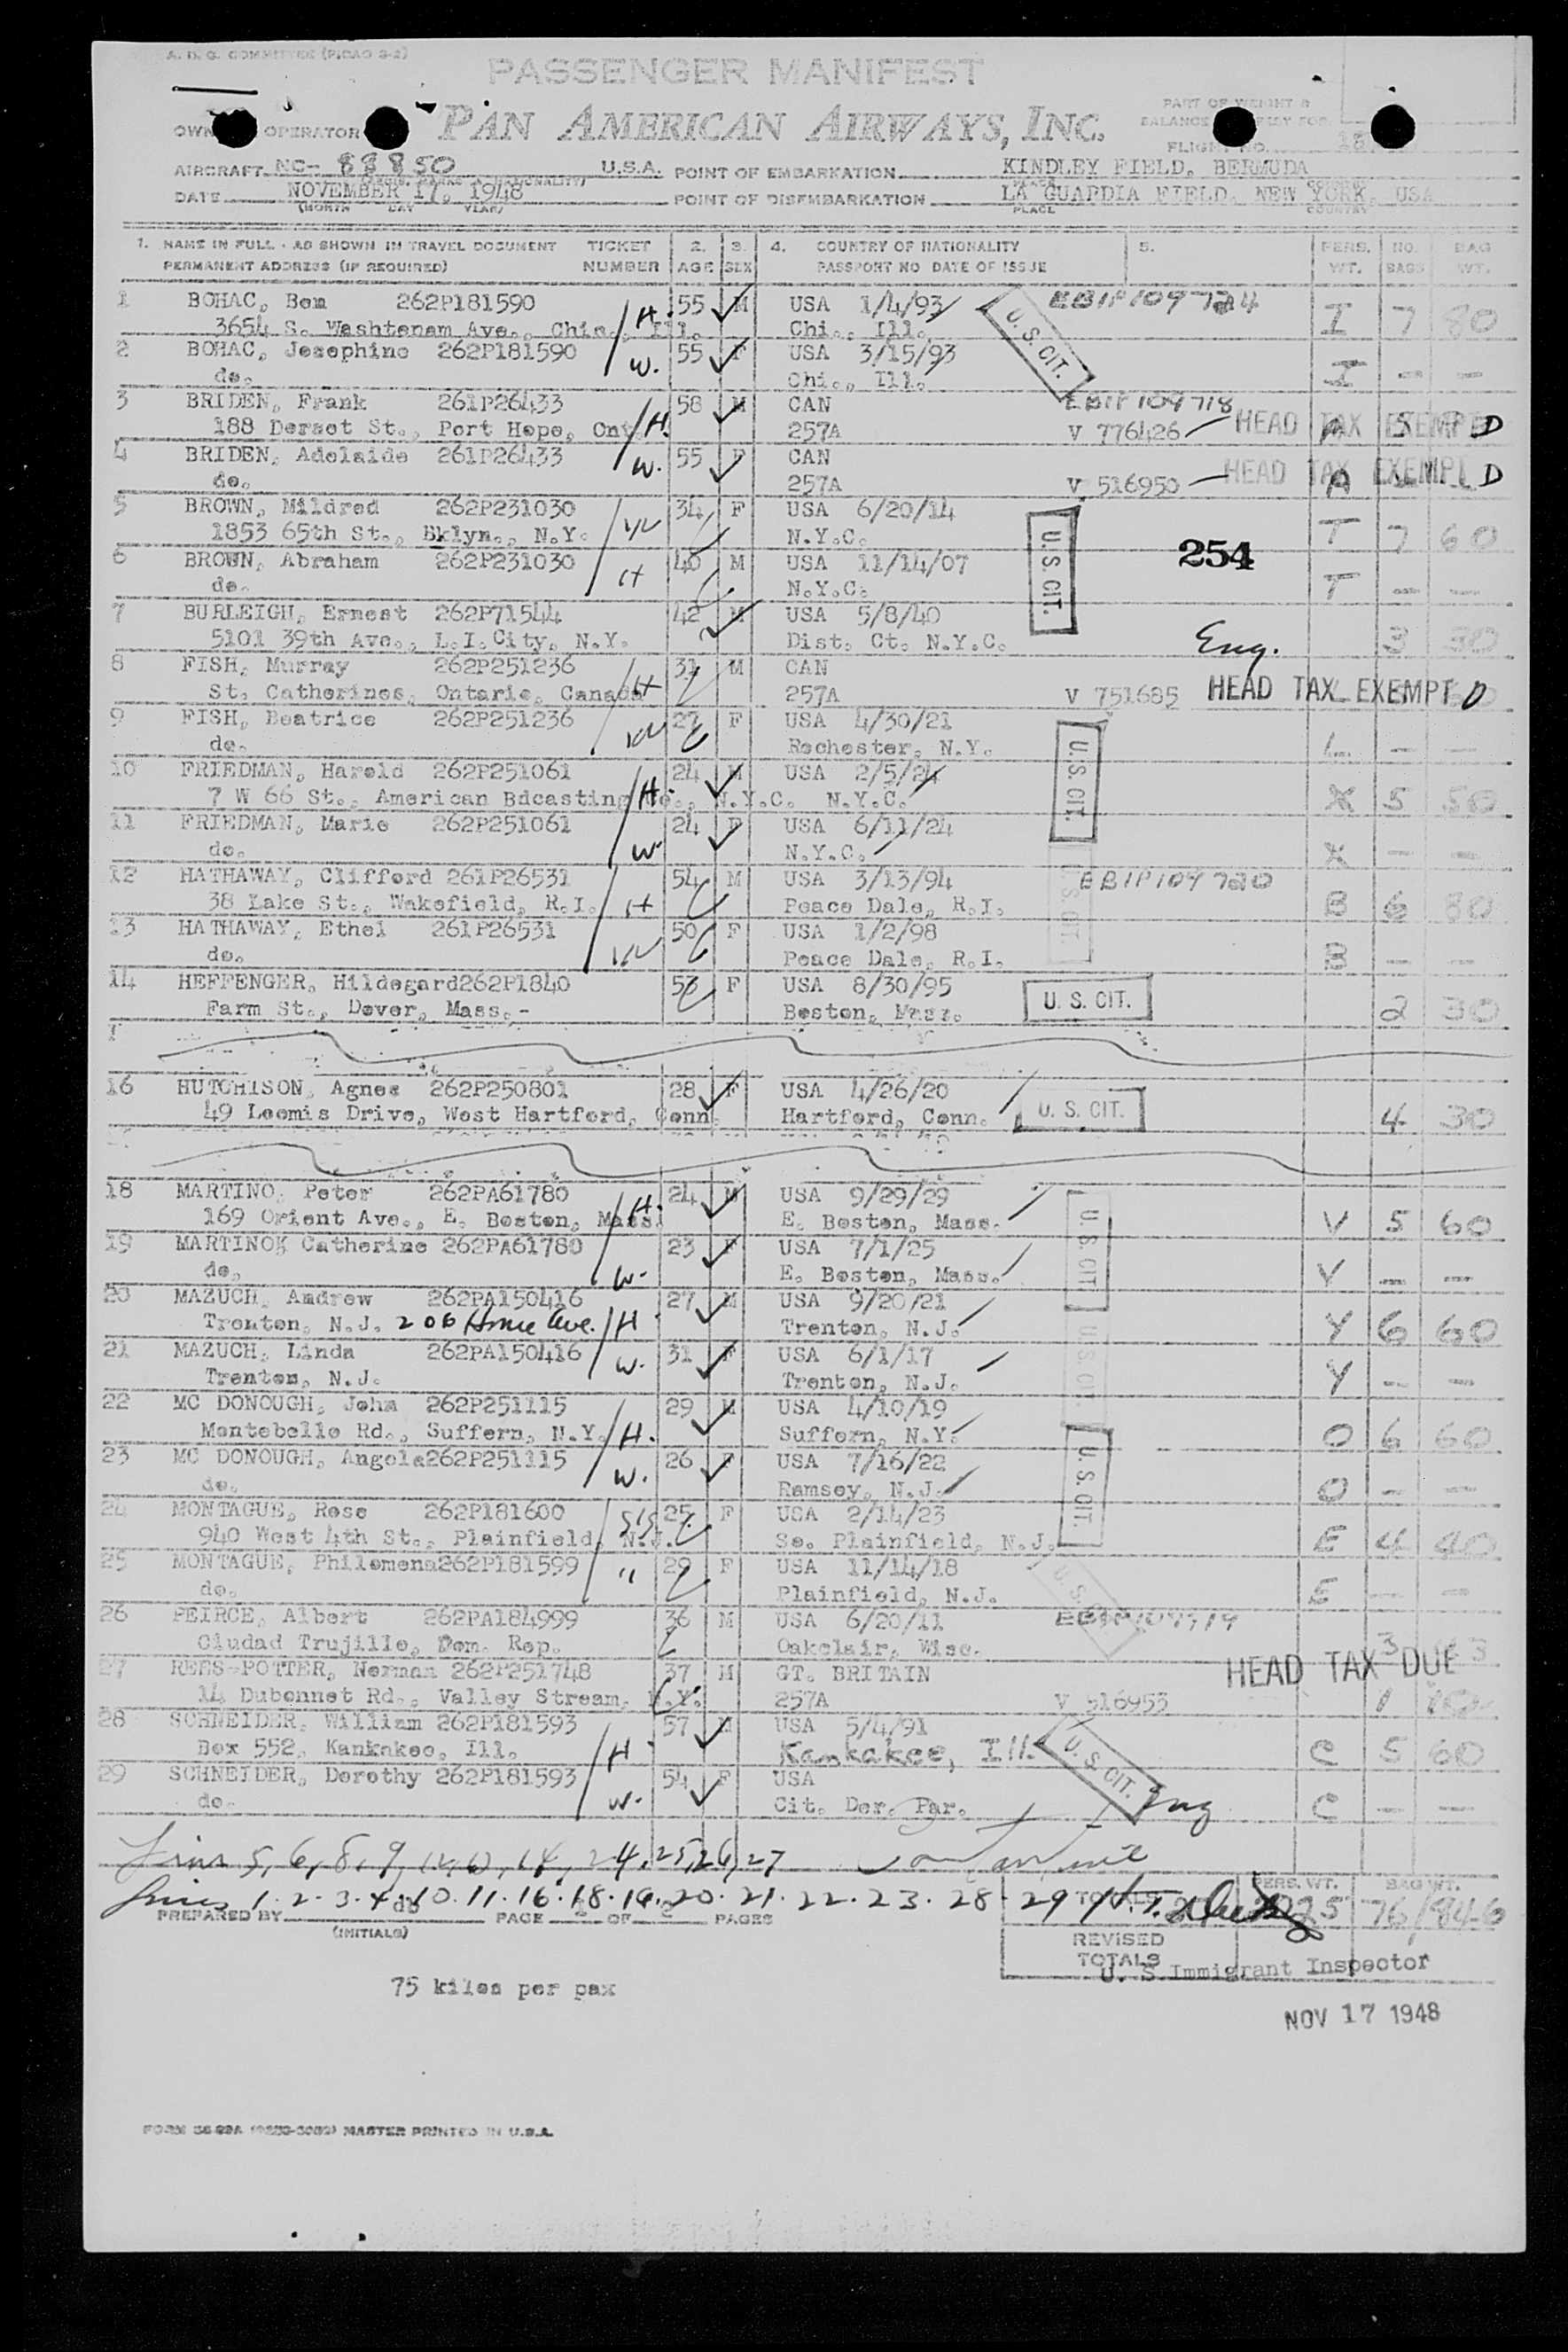 A. D. G. COMMITTEE (PICAO 3-2)
PASSENGER MANIFEST
PAN AMERICAN AIRWAYS, INC.
PART OF WEIGHT &
OPERATOR
BALANCE
FLIGHT NO.
AIRCRAFT NC- 88850 U.S.A. POINT OF EMBARKATION KINDLEY FIELD, BERMUDA
DATE NOVEMBER 17, 1948 POINT OF DISEMBARKATION LA GUARDIA FIELD, NEW YORK, USA
(MONTH DAY YEAR) PLACE COUNTRY
1. NAME IN FULL - AS SHOWN IN TRAVEL DOCUMENT TICKET 2. 3. 4. COUNTRY OF NATIONALITY 5. PERS. NO. BAG
PERMANENT ADDRESS (IF REQUIRED) NUMBER AGE SEX PASSPORT NO DATE OF ISSUE WT. BAGS WT.
1 BOHAC, Bem 262P181590 H. 55 M USA 1/4/93 EB1P109724 I 7 80
3654 S. Washtenam Ave., Chic., Ill. Chi., Ill. U.S. CIT.
2 BOHAC, Josephine 262P181590 W. 55 F USA 3/15/93 I - -
do. Chi., Ill.
3 BRIDEN, Frank 261P26433 58 M CAN EB1P109718
188 Dorset St., Port Hope, Ont. H. 257A V 776426 HEAD TAX EXEMPT D
4 BRIDEN, Adelaide 261P26433 W. 55 F CAN HEAD TAX EXEMPT D
do. 257A V 516950 A
5 BROWN, Mildred 262P231030 W 34 F USA 6/20/14
1853 65th St., Bklyn., N.Y. N.Y.C. T 7 60
254
6 BROWN, Abraham 262P231030 H 40 M USA 11/14/07 U.S. CIT.
do. N.Y.C. T - -
7 BURLEIGH, Ernest 262P71544 42 M USA 5/8/40
5101 39th Ave., L.I.City, N.Y. Dist. Ct. N.Y.C. Eng. 3 30
8 FISH, Murray 262P251236 H 31 M CAN
St. Catherines, Ontario, Canada 257A V 751685 HEAD TAX EXEMPT D
9 FISH, Beatrice 262P251236 W 27 F USA 4/30/21
do. Rochester, N.Y. U.S. CIT. L - -
10 FRIEDMAN, Harold 262P251061 24 M USA 2/5/24
7 W 66 St., American Bdcasting Co., N.Y.C. H. N.Y.C. X 5 50
11 FRIEDMAN, Marie 262P251061 24 F USA 6/11/24
do. W. N.Y.C. X - -
12 HATHAWAY, Clifford 261P26531 54 M USA 3/13/94 EB1P109720
38 Lake St., Wakefield, R.I. H Peace Dale, R.I. U.S. CIT. B 6 80
13 HATHAWAY, Ethel 261P26531 50 F USA 1/2/98
do. W Peace Dale, R.I. B - -
14 HEFFENGER, Hildegard262P1840 53 F USA 8/30/95 U. S. CIT.
Farm St., Dover, Mass.- Boston, Mass. 2 30
16 HUTCHISON, Agnes 262P250801 28 F USA 4/26/20
49 Loomis Drive, West Hartford, Conn. Hartford, Conn. U. S. CIT. 4 30
18 MARTINO, Peter 262PA61780 H. 24 M USA 9/29/29
169 Orient Ave., E. Boston, Mass. E. Boston, Mass. V 5 60
19 MARTINOK Catherine 262PA61780 23 F USA 7/1/25 U.S. CIT.
do. W. E. Boston, Mass. V - -
20 MAZUCH, Andrew 262PA150416 27 M USA 9/20/21
Trenton, N.J. 206 Ave. H Trenton, N.J. U.S. CIT. Y 6 60
21 MAZUCH, Linda 262PA150416 W. 31 F USA 6/1/17
Trenton, N.J. Trenton, N.J. Y - -
22 MC DONOUGH, John 262P251115 29 M USA 4/10/19
Montebello Rd., Suffern, N.Y. H. Suffern, N.Y. O 6 60
23 MC DONOUGH, Angela262P251115 W. 26 F USA 7/16/22 U.S. CIT.
do. Ramsey, N.J. O - -
24 MONTAGUE, Rose 262P181600 sis 25 F USA 2/14/23
940 West 4th St., Plainfield, N.J. So. Plainfield, N.J. E 4 40
25 MONTAGUE, Philomena262P181599 " 29 F USA 11/14/18
do. Plainfield, N.J. U.S. E - -
26 PEIRCE, Albert 262PA184999 36 M USA 6/20/11
Ciudad Trujillo, Dom. Rep. Oakclair, Wisc. 3
27 REES-POTTER, Norman 262P251748 37 M GT. BRITAIN HEAD TAX DUE
14 Dubonnet Rd., Valley Stream, N.Y. 257A V 516953 1 10
28 SCHNEIDER, William 262P181593 57 M USA 5/4/91
Box 552, Kankakee, Ill. H Kankakee, Ill. U. S. CIT. C 5 60
29 SCHNEIDER, Dorothy 262P181593 54 F USA
do. W. Cit. Der. Par. C - -
Lines 5, 6, 8, 9, 12, 13, 14, 24, 25, 26, 27
Lines 1. 2. 3. 4. 10. 11. 16. 18. 19. 20. 21. 22. 23. 28. 29
TOTALS PERS. WT. BAG WT.
76/846
PREPARED BY do PAGE 1 OF 2 PAGES
(INITIALS)
REVISED
TOTALS
U. S. Immigrant Inspector
75 kilos per pax
NOV 17 1948
MASTER PRINTED IN U.S.A.